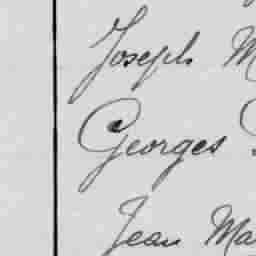 Joseph
Georges
Jean Ma